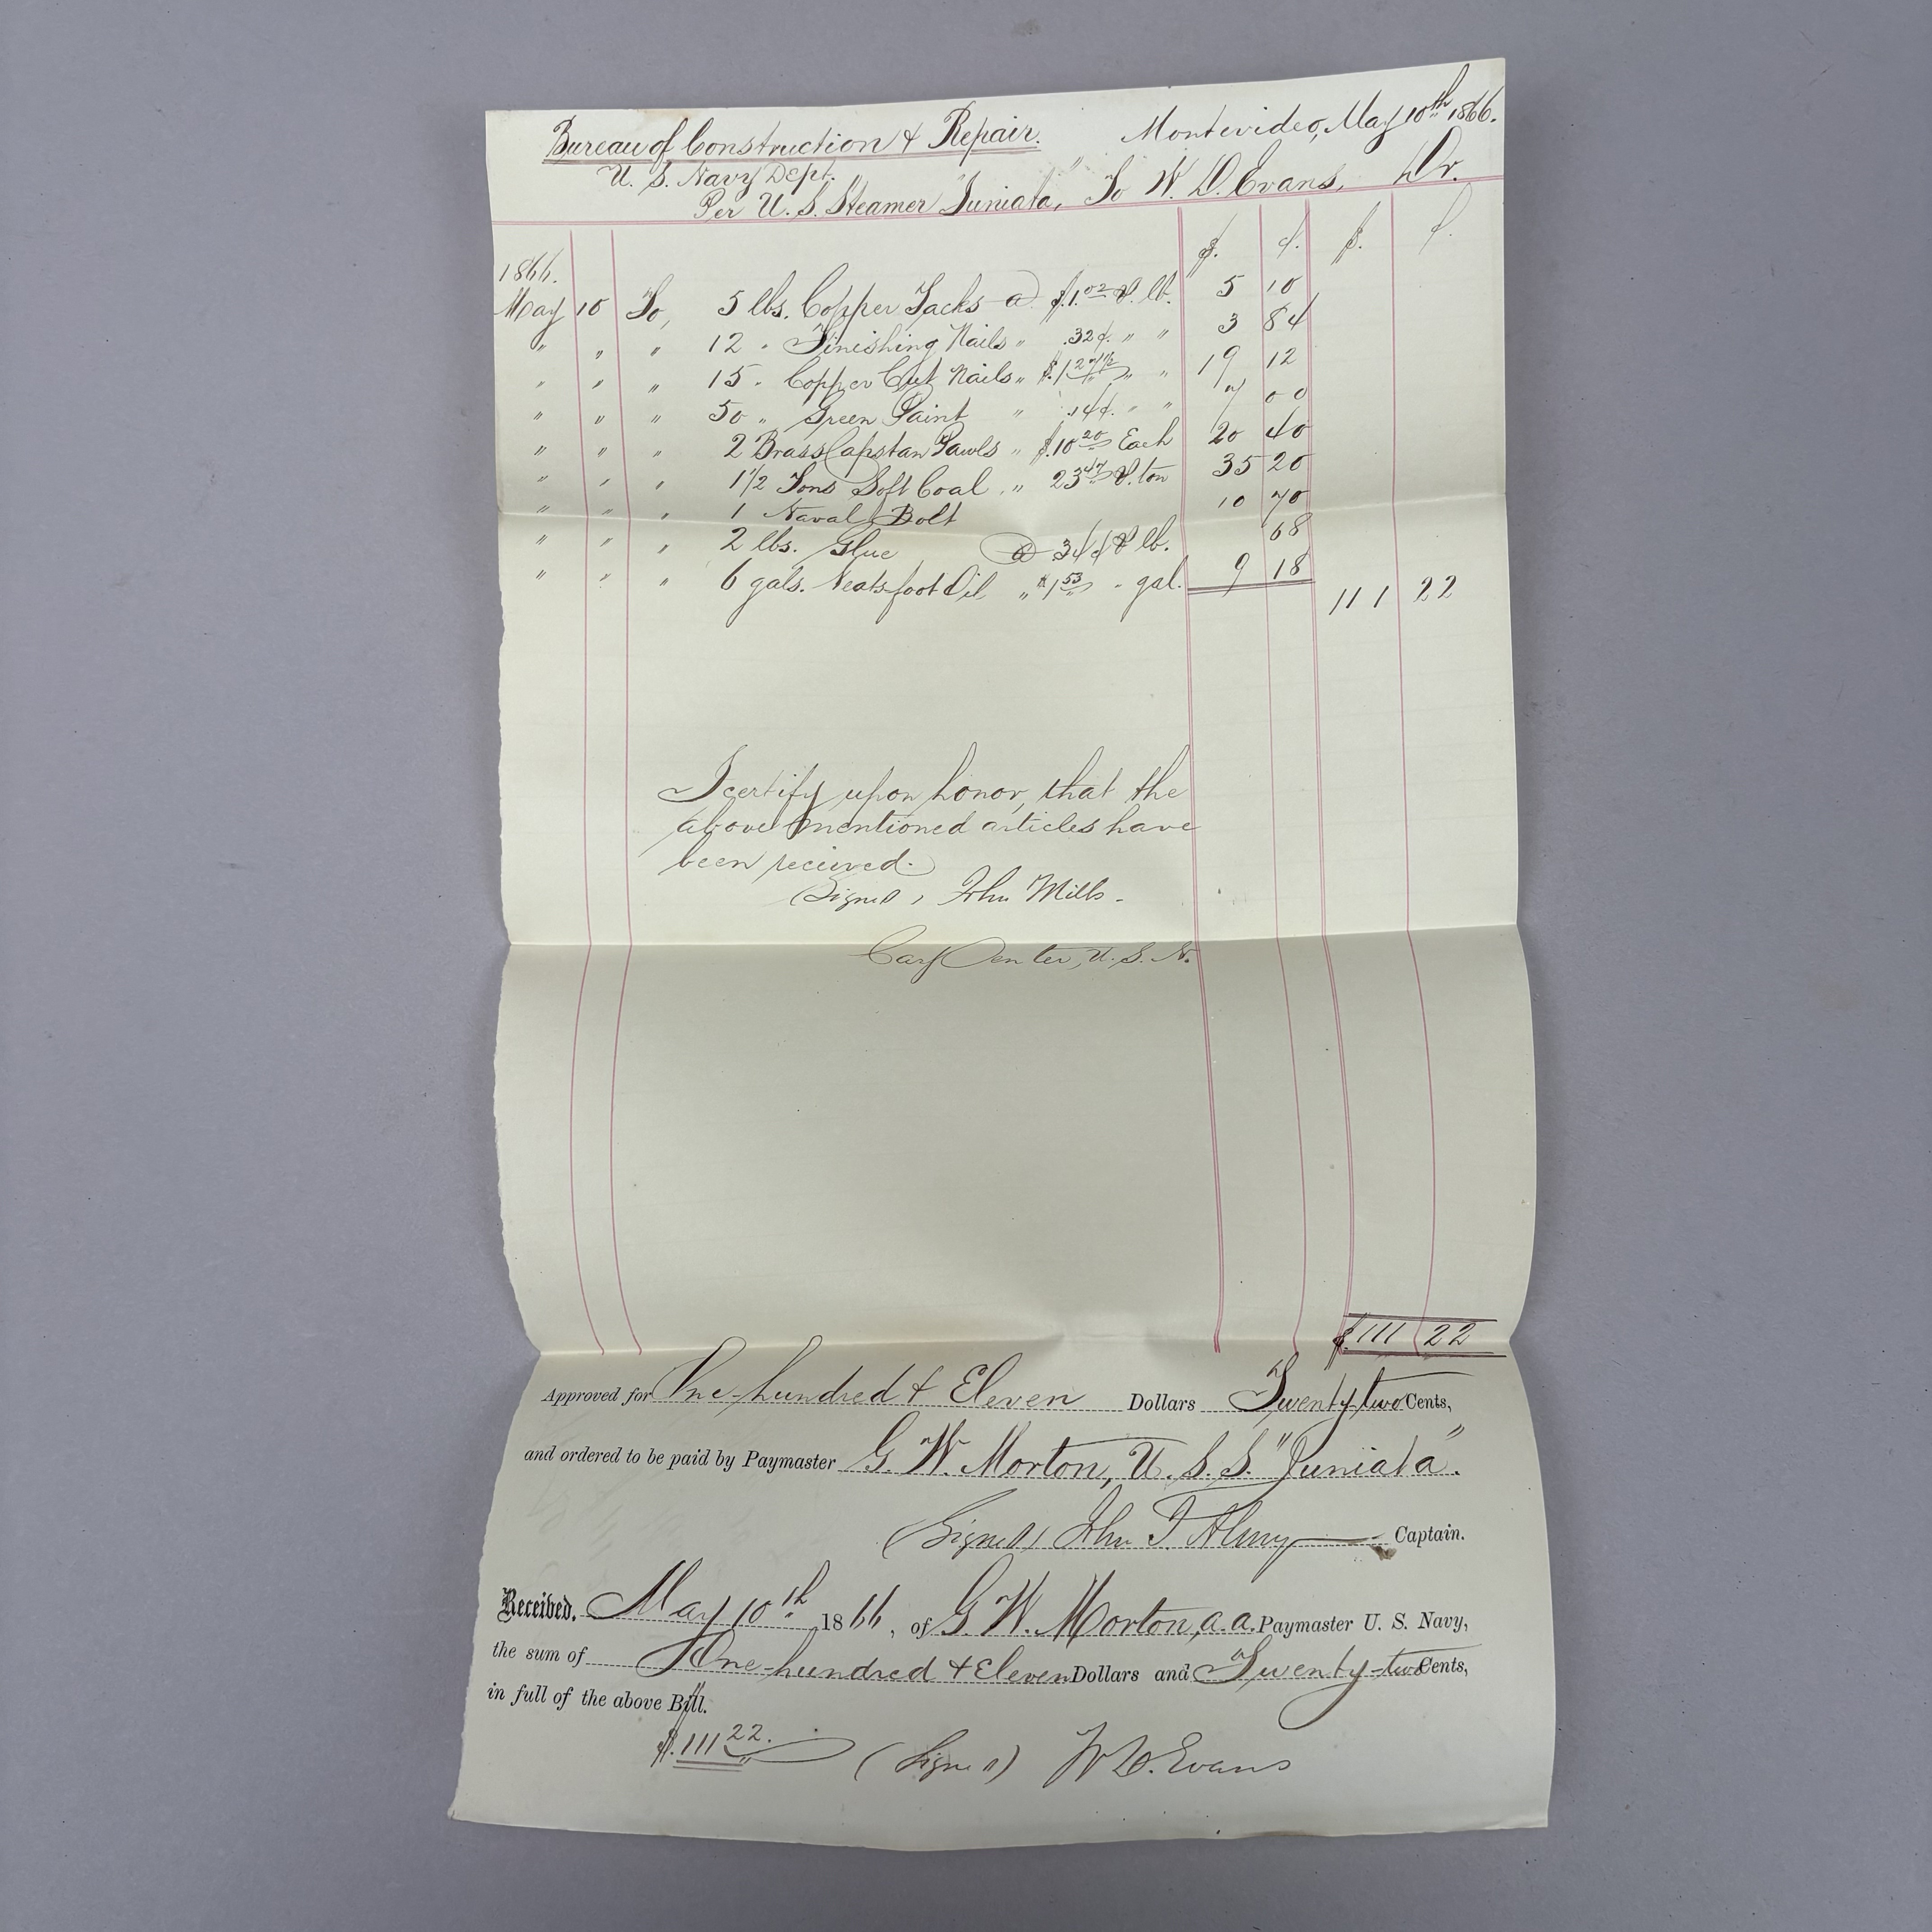 Bureau of Construction & Repair. Montevideo, May 10th 1866.
U. S. Navy Dept.
Per U. S. Steamer "Juniata," To W. D. Evans, Dr.
$. ¢. $. ¢.
1866.
May 10 To, 5 lbs. Copper Tacks @ $1.02 ⅌. lb. 5 10
" " " 12 " Finishing Nails " .32¢. " " 3 84
" " " 15 " Copper Cut Nails " $.1 27 1/2 " " 19 12
" " " 50 " Green Paint " .14¢. " " 7 00
" " " 2 Brass Capstan Pawls " $.10 20 Each 20 40
" " " 1 1/2 Tons Soft Coal " 23 47 ⅌. ton 35 20
" " " 1 Naval Bolt 10 70
" " " 2 lbs. Glue @ .34¢ ⅌ lb. 68
" " " 6 gals. Neatsfoot Oil " $1 53 " gal. 9 18
111 22
I certify upon honor, that the
above mentioned articles have
been recieved.
(Signed) John Mills.
Carpenter, U. S. N.
$.111 22
Approved for One-hundred & Eleven Dollars Twenty-two Cents,
and ordered to be paid by Paymaster G. W. Morton, U. S. S. "Juniata".
(Signed) John J. Almy Captain.
Received, May 10th 1866, of G. W. Morton, a. a. Paymaster U. S. Navy,
the sum of One-hundred & Eleven Dollars and Twenty-two Cents,
in full of the above Bill.
$.111 22. (Signed) W D. Evans